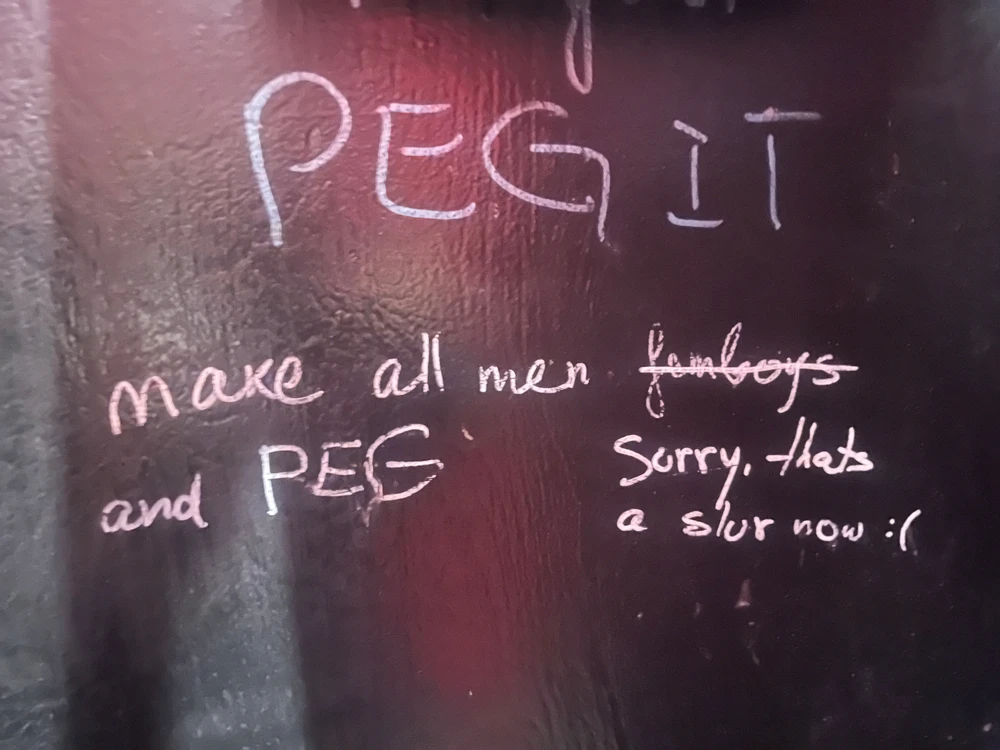 PEG IT
make all men femboys
and PEG
Sorry, thats
a slur now :(